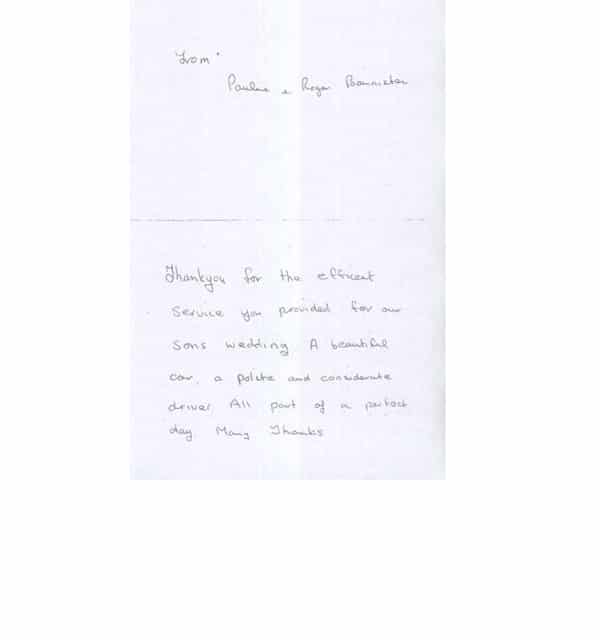 From
Pauline & Roger Bannister
Thankyou for the efficent
Service you provided for our
Sons wedding. A beautiful
car, a polite and considerate
driver. All part of a perfect
day Many Thanks